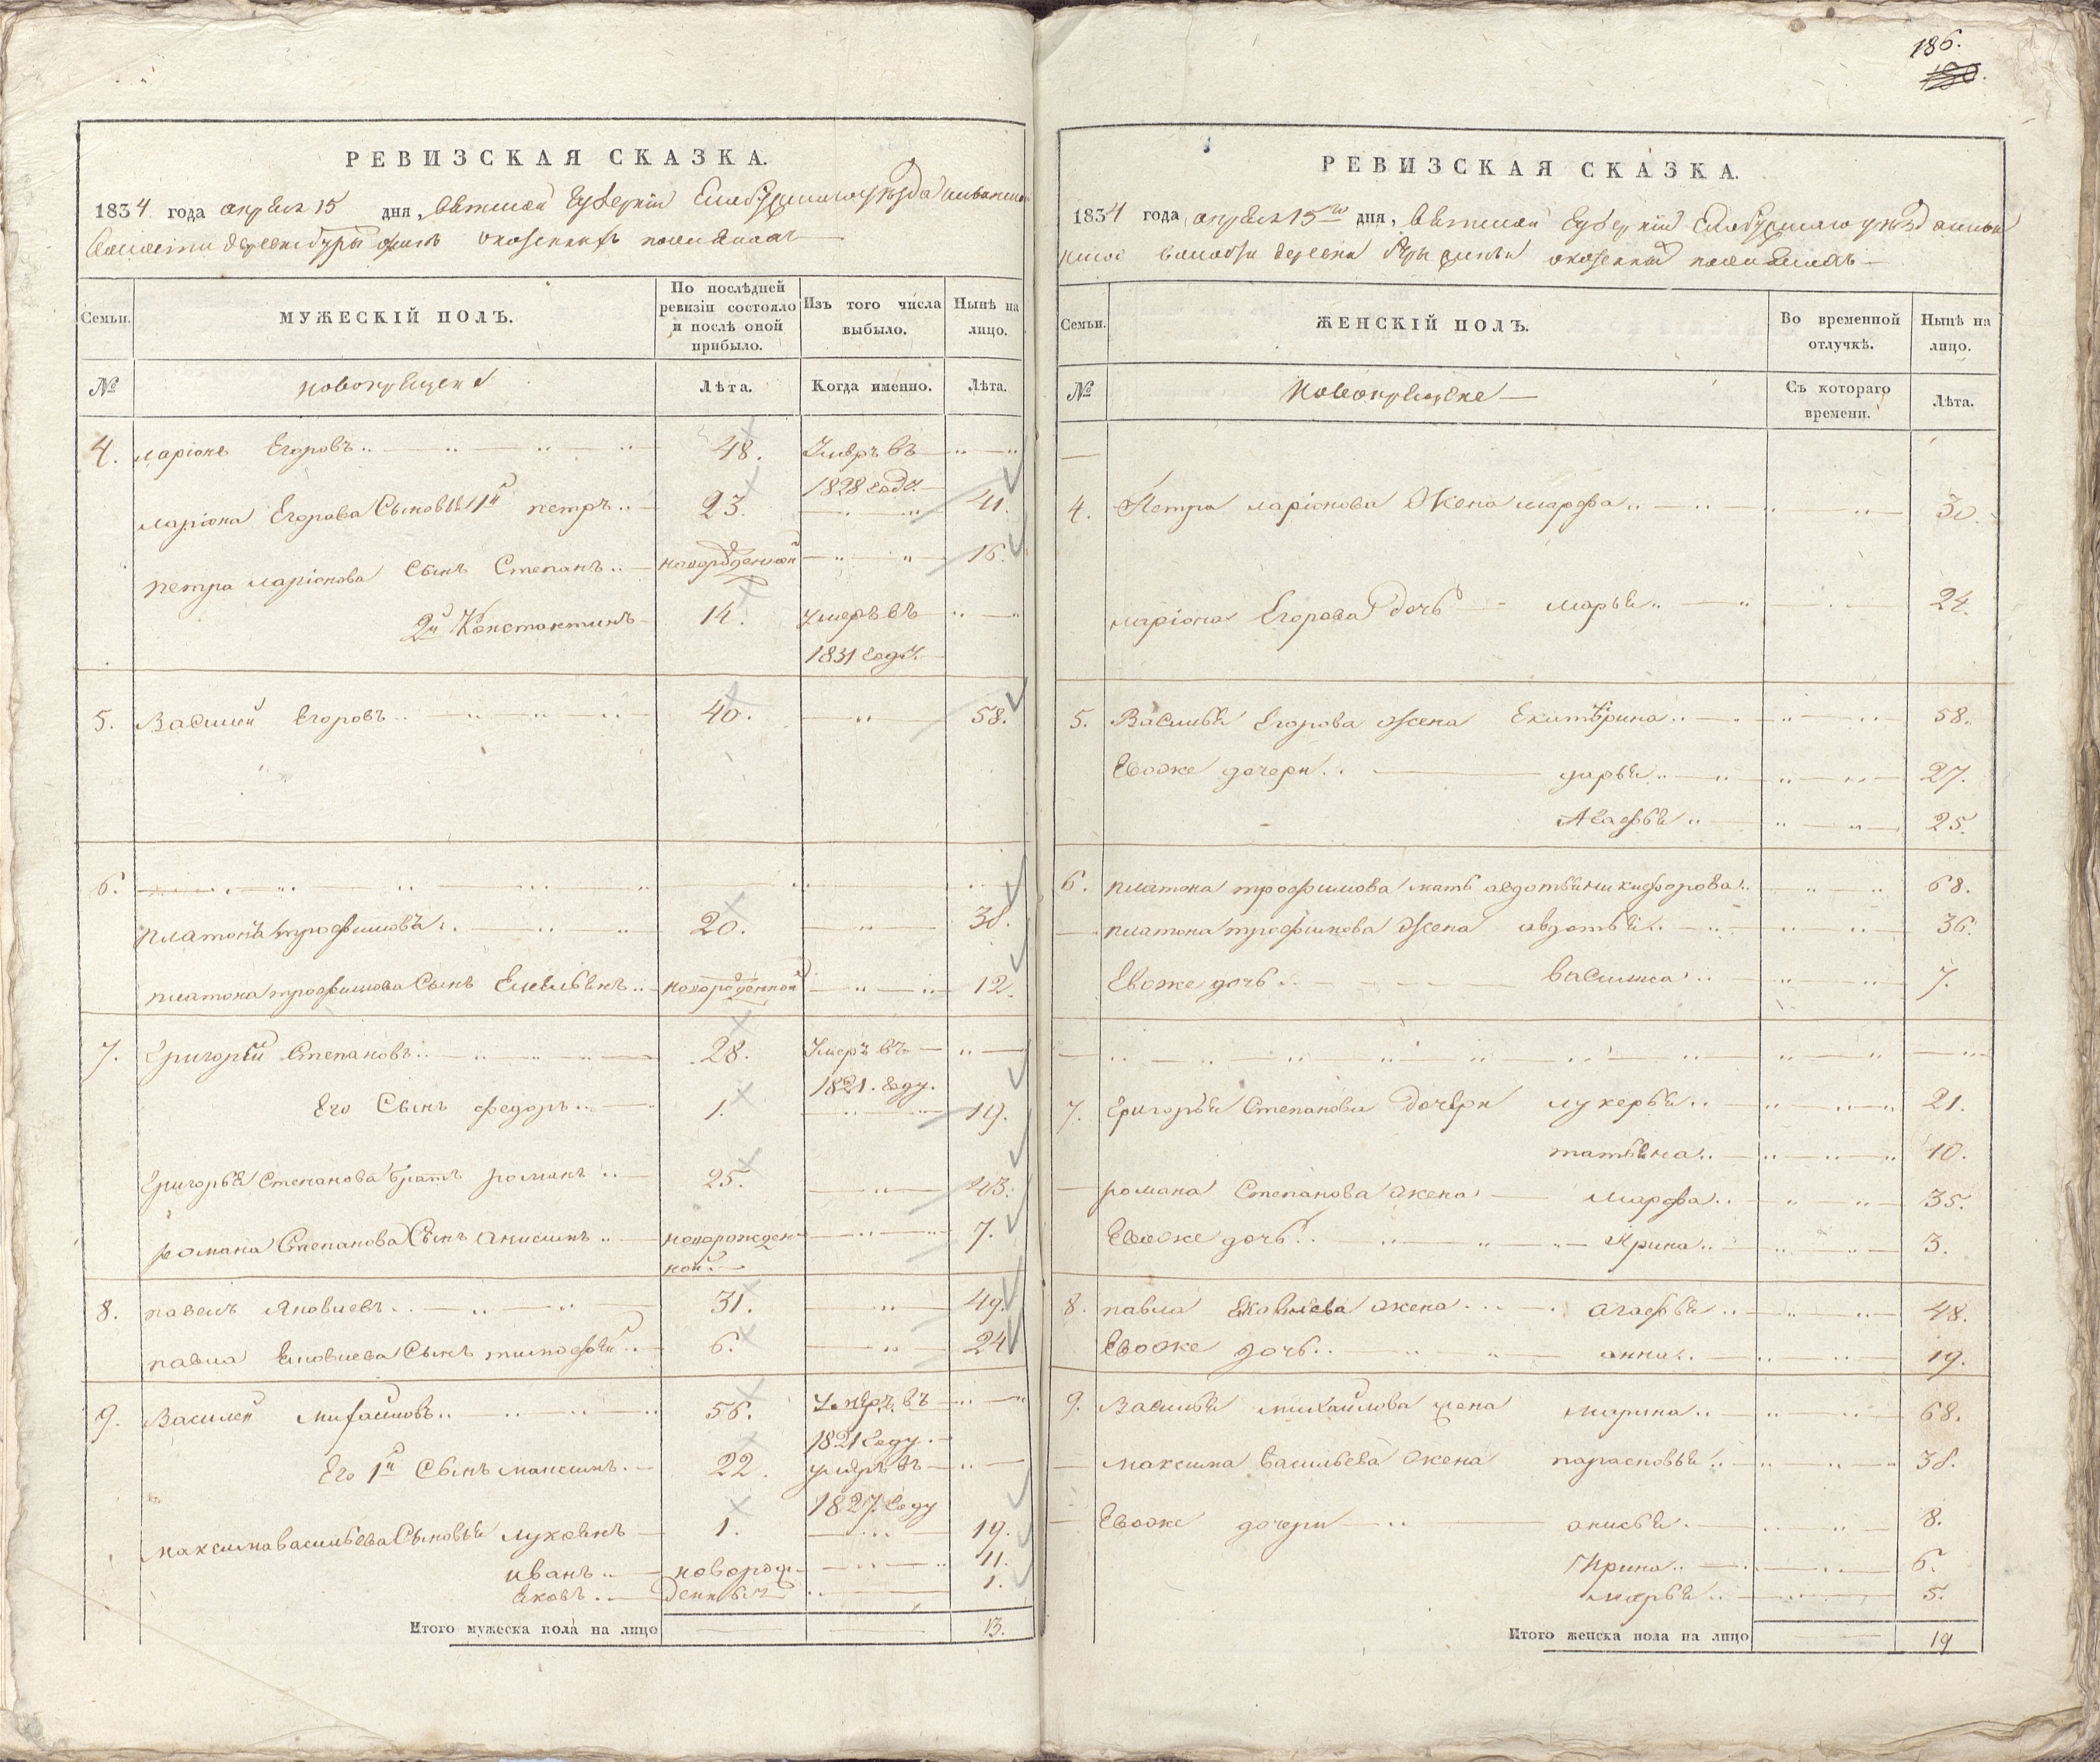 186.
РЕВИЗСКАЯ СКАЗКА.
1834 года апреля 15 дня, Вятской Губернии Елабужскаго уезда
волости деревни
Семьи.
МУЖЕСКІЙ ПОЛЪ.
По послѣдней ревизіи состояло и послѣ оной прибыло.
Изъ того числа выбыло.
Нынѣ на лицо.
№
новокрещены
Лѣта.
Когда именно.
Лѣта.
4. ларіонъ Егоровъ 48. Умеръ въ
1828 году.
ларіона Егорова Сыновья 1й петръ 23. 41.
петра ларіонова Сынъ Степанъ новорожденной 16.
2й Константинъ 14. умеръ въ
1831 году.
5. Василей Егоровъ 40. 58.
6.
платонъ трофимовъ 20. 38.
платона трофимова Сынъ Емельянъ новорожденной 12.
7. Григорей Степановъ 28. Умеръ въ
1821. году.
Его Сынъ федоръ 1. 19.
Григорья Степанова братъ романъ 25. 43.
романа Степанова Сынъ анисимъ новорожден 7.
ной
8. павелъ Яковлевъ 31. 49.
павла Яковлева Сынъ тимофей 6. 24
9. Василей михайловъ 56. Умеръ въ
1821 году.
Его 1й Сынъ максимъ 22. умеръ въ
1827. году
максима васильева Сыновья лукоянъ 1. 19.
иванъ новорож 11.
Яковъ денныя 1.
Итого мужеска пола на лицо 13.
РЕВИЗСКАЯ СКАЗКА.
1834 года апреля 15го дня, Вятской Губернии Елабужскаго уезда
волости деревни
Семьи.
ЖЕНСКІЙ ПОЛЪ.
Во временной отлучкѣ.
Нынѣ на лицо.
№
Новокрещене
Съ котораго времени.
Лѣта.
4. Петра ларіонова Жена марфа 30.
ларіона Егорова дочь марья 24.
5. Василья Егорова жена Екатерина 58.
Евоже дочери дарья 27.
Агафья 25.
6. платона трофимова мать авдотья никифорова 68.
платона трофимова Жена авдотья 36.
Евоже дочь василиса 7.
7. Григорья Степанова дочери лукерья 21.
татьяна 10.
романа Степанова жена марфа 35.
Евоже дочь Ирина 3.
8. павла Яковлева жена агафья 48.
Евоже дочь анна 19.
9. Василья михайлова жена марина 68.
максима васильева жена парасковья 38.
Евоже дочери анисья 8.
Ирина 6.
марья 5.
Итого женска пола на лицо 19